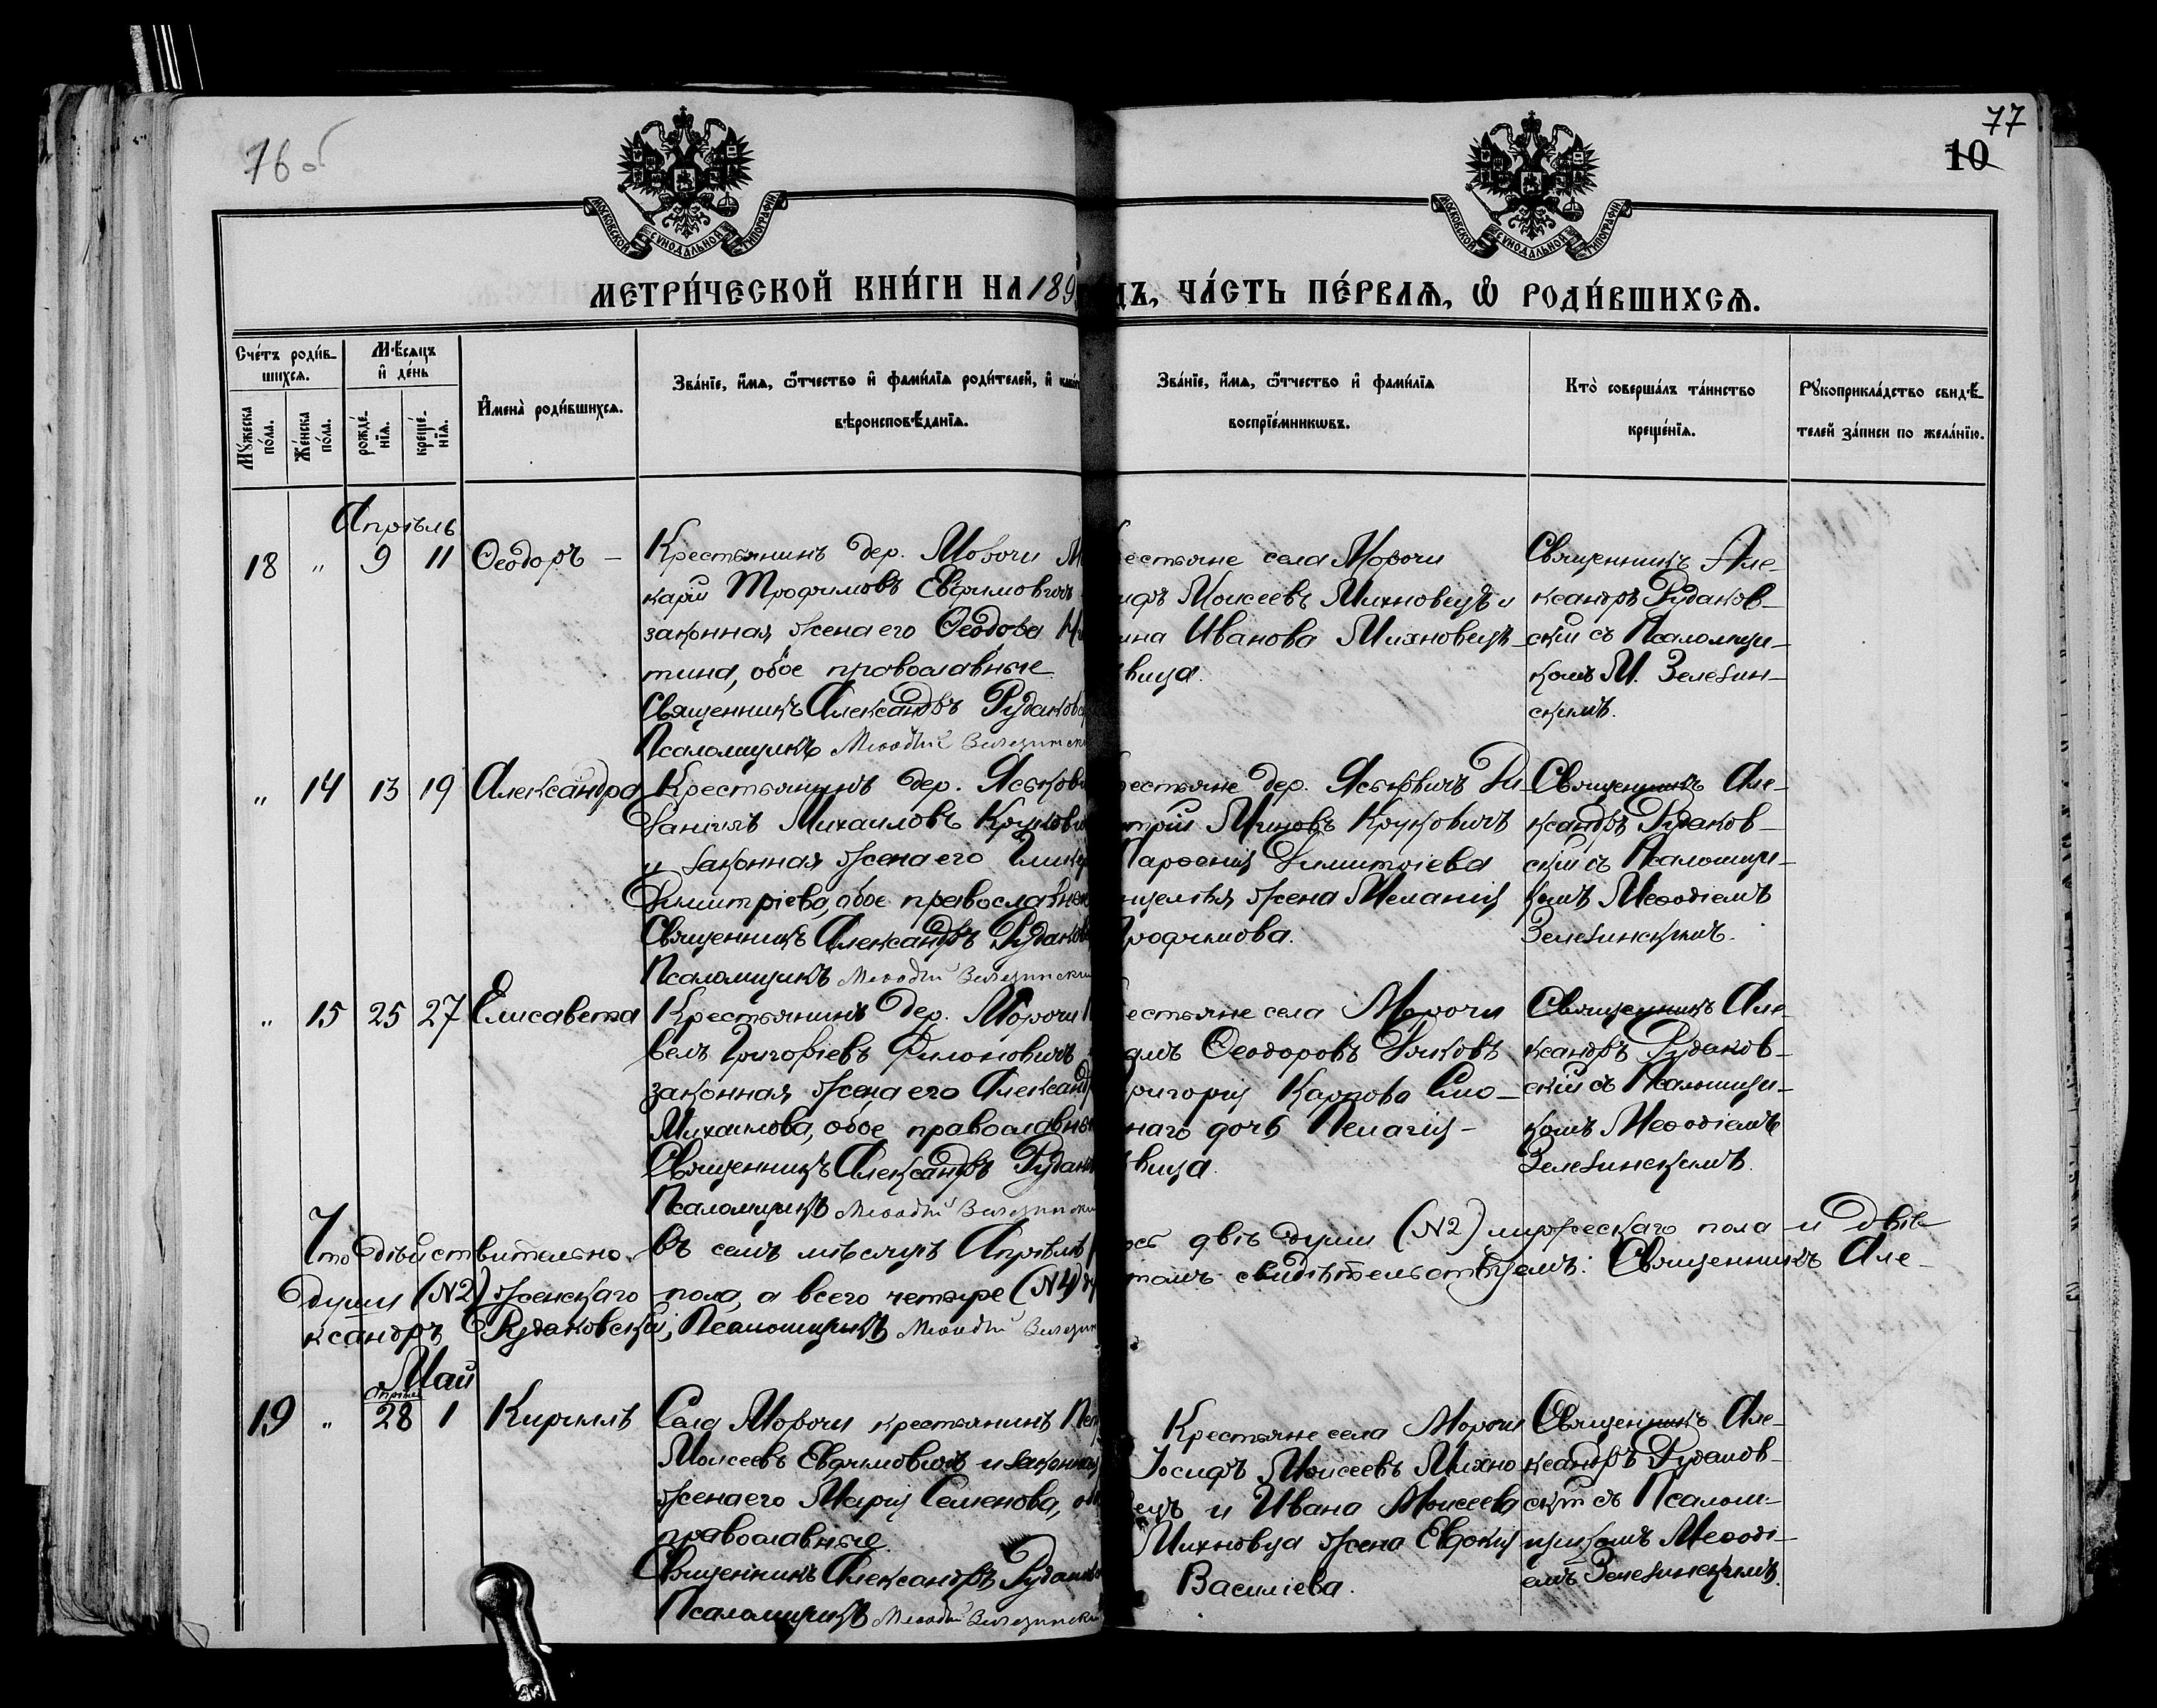 76 об
77
10
МОСКОВСКОЙ СѴНОДАЛЬНОЙ ТИПОГРАФІИ
МОСКОВСКОЙ СѴНОДАЛЬНОЙ ТИПОГРАФІИ
МЕТРИ́ЧЕСКОЙ КНИ́ГИ НА 189
ДЪ, ЧА́СТЬ ПЕ́РВАѦ, Ѽ РОДИ́ВШИХСѦ.
Сче́тъ роди́в-
шихсѧ.
Мѣ́сѧцъ
и҆ де́нь
Мꙋ́жеска
по́ла.
Же́нска
по́ла.
рожде́-
нїѧ.
креще́-
нїѧ.
И҆мена̀ роди́вшихсѧ.
Зва́нїе, и҆́мѧ, ѻ҆́тчество и҆ фами́лїѧ роди́телей, и҆
вѣроисповѣ́данїѧ.
Зва́нїе, и҆́мѧ, ѻ҆́тчество и҆ фами́лїѧ
воспрїе́мникѡвъ.
Кто̀ соверша́лъ та́инство
креще́нїѧ.
Рꙋкоприкла́дство свидѣ́-
телей за́писи по жела́нїю.
Апрѣль
18 " 9 11 Ѳеодоръ –
Крестьянинъ дер. Морочи М
карій Трофимовъ Евфимовичъ
законная жена его Ѳеодора Ни
тина, обое православные
Священникъ Александръ Рудаковс
Псаломщикъ Меѳодій Зелезинск
естьяне села Морочи
ифъ Моисеевъ Михновецъ и
ина Иванова Михновецъ –
вица.
Священникъ Але-
ксандръ Рудаков-
скій съ Псаломщи-
комъ М. Зелезин-
скимъ.
" 14 13 19 Александра
Крестьянинъ дер. Яськови
Даніилъ Михаиловъ Круковичъ
и законная жена его Глике
Димитріева, обое православны
Священникъ Александръ Рудаков
Псаломщикъ Меѳодій Зелезински
рестьяне дер. Яськовичъ Ди-
митрій Миновъ Круковичъ
Парѳенія Димитріева
жена Меланія
Трофимова.
Священникъ Але-
ксандръ Рудаков-
скій съ Псаломщи-
комъ Меѳодіемъ
Зелезинскимъ.
" 15 25 27 Елисавета
Крестьянинъ дер. Морочи П
велъ Григоріевъ Филоновичъ
законная жена его Александр
Михаилова, обое православны
Священникъ Александръ Рудако
Псаломщикъ Меѳодій Зелезински
естьяне села Морочи
Ѳеодоровъ Дяковъ
ригорія Карпова Смо-
наго дочь Пелагія –
вица.
Священникъ Але-
ксандръ Рудаков-
скій съ Псаломщи-
комъ Меѳодіемъ
Зелезинскимъ.
Что дѣйствительно въ семъ мѣсяцѣ Апрѣлѣ
ось двѣ души (№2) мужескаго пола и двѣ
души (№2) женскаго пола, а всего четыре (№4) ду
томъ свидѣтельствуемъ: Священникъ Але-
ксандръ Рудаковскій, Псаломщикъ Меѳодій Зелезин
Май
Апрѣля
19 " 28 1 Кириллъ
Села Морочи крестьянинъ Пет
Моисеевъ Евфимовичъ и законная
жена его Марія Семенова, об
православные.
Священникъ Александръ Рудаковс
Псаломщикъ Меѳодій Зелезински
Крестьяне села Морочи
Іосифъ Моисеевъ Михно
вецъ и Ивана Моисеева
Михновца жена Евдокія
Василіева.
Священникъ Але-
ксандръ Рудаков-
скій съ Псалом-
щикомъ Меѳоді-
емъ Зелезинскимъ.